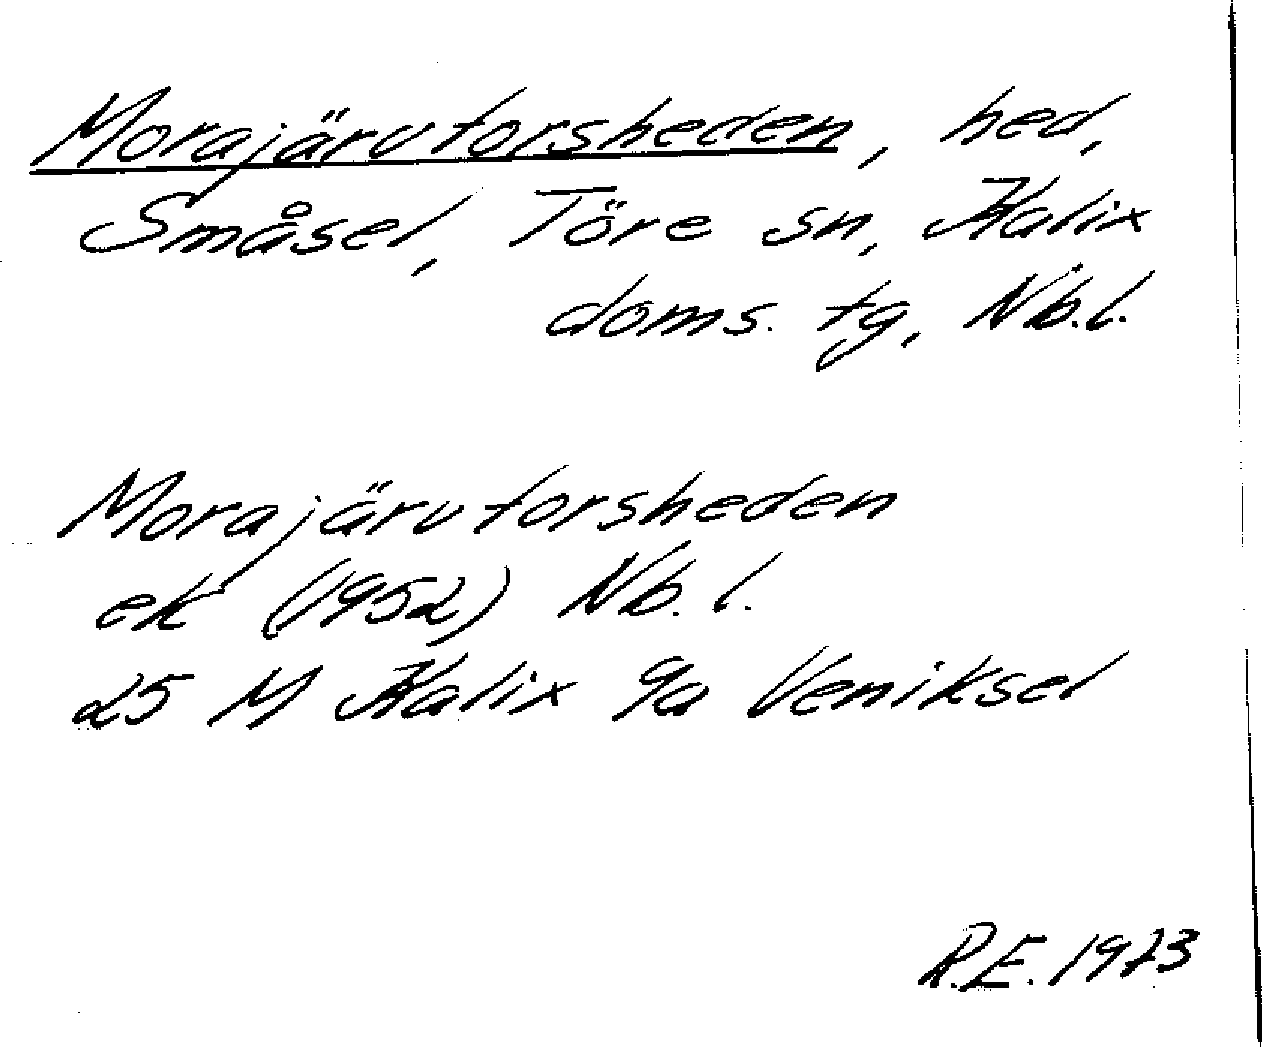 Morajärvforsheden, hed,
Småsel, Töre sn, Kalix
doms. tg, Nb.l.
Morajärvforsheden
ek (1952) Nb.l.
25 M Kalix 9a Veniksel
R.E. 1973